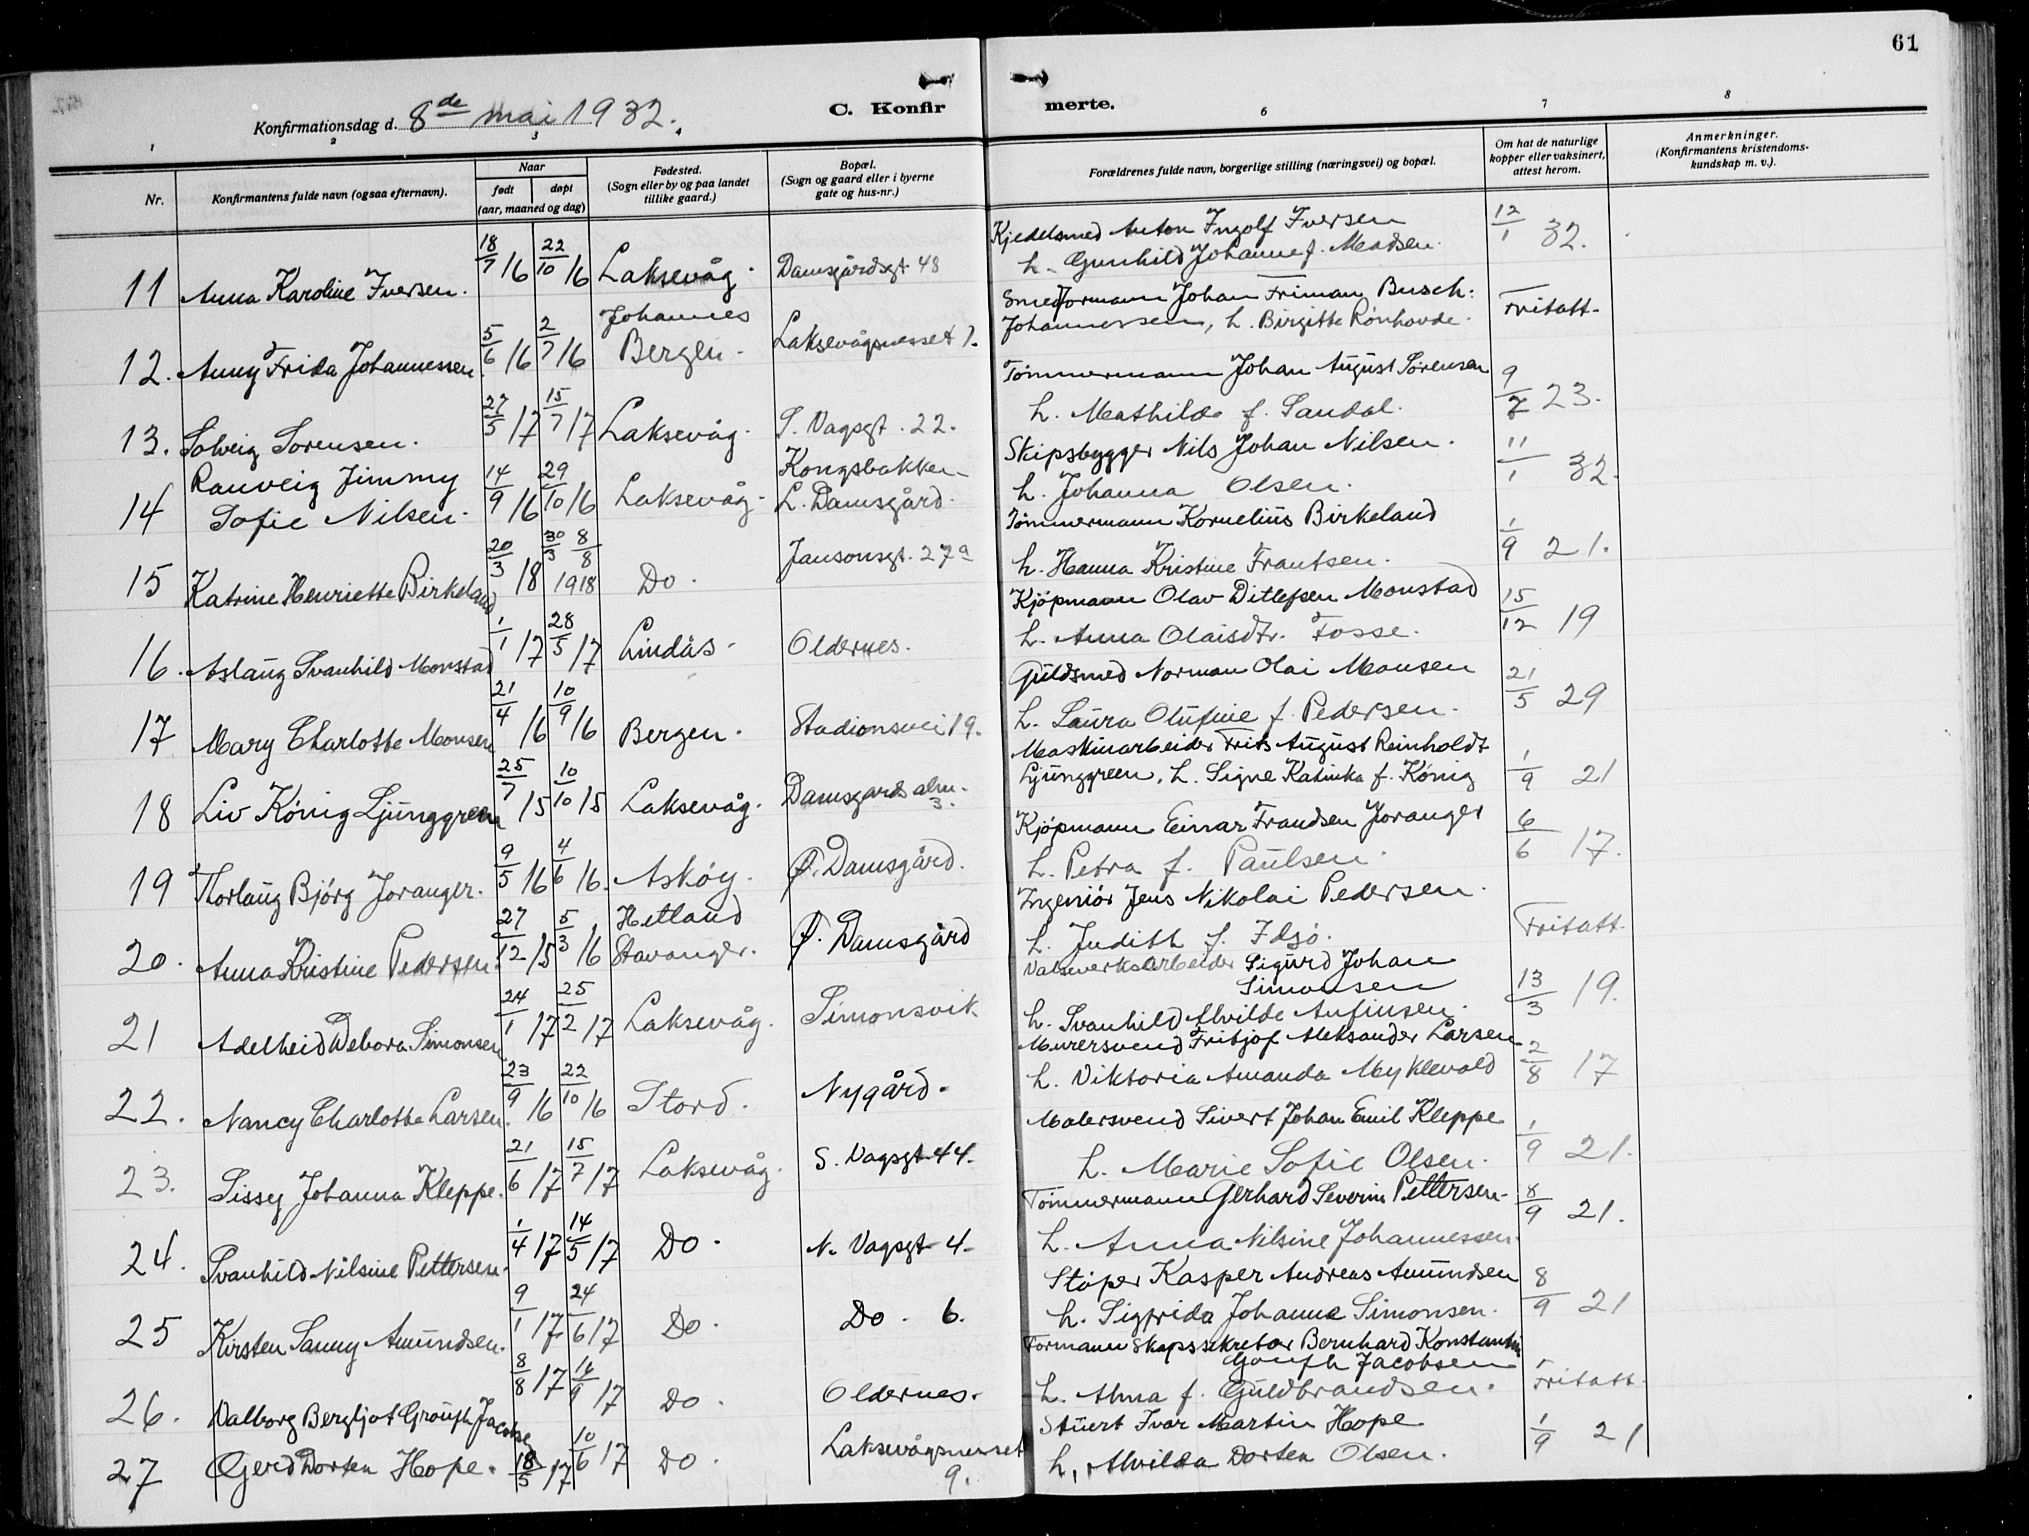 61
Konfirmationsdag d. 8de mai 1932.
C. Konfir
merte.
1 2 3 6 7 8
Nr.
Konfirmantens fulde navn (ogsaa efternavn).
Naar
født døpt
(aar, maaned og dag)
Fødested.
(Sogn eller by og paa landet
tillike gaard.)
Bopæl.
(Sogn og gaard eller i byerne
gate og hus-nr.)
Forældrenes fulde navn, borgerlige stilling (næringsvei) og bopæl.
Om hat de naturlige
kopper eller vaksinert,
attest herom.
Anmerkninger.
(Konfirmantens kristendoms-
kundskap m. v.).
11 Anna Karoline Iversen. 18/7 16 22/10 16 Laksevåg. Damsgårdsgt 48
Kjedelsmed Anton Ingolf Iversen
h. Gunhild Johanne f. Madsen. 12/1 32.
12. Anny Frida Johannessen 5/6 16 2/7 16 Johannes
Bergen. Laksevågnesset 1.
Smedformann Johan Friman Busch:
Johannessen, h. Birgitte Rönhovde. Fritatt.
13. Solveig Sorensen. 27/5 17 15/7 17 Laksevåg. S. Vagsgt. 22.
Tömmermann Johan August Sörensen
h. Mathilde f. Sandal. 9/7 23.
14 Ranveig Jimmy
Sofie Nilsen. 14/9 16 29/10 16 Laksevåg. Kongsbakken
L. Damsgård.
Skipsbygger Nils Johan Nilsen.
h. Johanna Olsen. 11/1 32.
15 Katrine Henriette Birkeland 20/3 18 30/3 8/8 1918 Do. Jansonsgt. 27a
Tömmermann Kornelius Birkeland
h. Hanna Kristine Frantsen. 1/9 21.
16. Aslaug Svanhild Monstad 1/1 17 28/5 17 Lindås. Oldernes.
Kjöpmann Olav Ditlefsen Monstad
h. Anna Olaisdtr. Fosse. 15/12 19
17 Mary Charlotte Monsen 21/4 16 10/9 16 Bergen. Stadionsvei 19.
Guldsmed Norman Olai Monsen
h. Laura Olufine f. Pedersen. 21/5 29
18 Liv König Ljunggren 25/7 15 10/10 15 Laksevåg. Damsgards alm.
3.
Maskinarbeider Frits August Reinholdt
Ljunggreen, h. Signe Katinka f. König 1/9 21
19 Thorlaug Bjórg Joranger. 9/5 16 4/6 16. Asköy. Ø. Damsgård.
Kjöpmann Einar Frandsen Joranger
h. Petra f. Paulsen. 6/6 17.
20. Anna Kristine Pedersen. 27/12 15 5/3 16 Hetland
Stavanger. Ø. Damsgård
Ingeniör Jens Nikolai Pedersen.
h. Judith f. Idsö. Fritatt.
21 Adelheid Debora Simonsen 24/1 17 25/2 17 Laksevåg. Simonsvik
Valseverksarbeider Sigurd Johan
Simonsen
h. Svanhild Alvilde Anfinsen. 13/3 19.
22. Nancy Charlotte Larsen. 23/9 16 22/10 16 Stord. Nygård.
Murersvend Fritjof Aleksander Larsen
h. Viktoria Amanda Myklevold 2/8 17
23. Sissey Johanna Kleppe. 21/6 17 15/7 17 Laksevåg. S. Vagsgt. 44.
Malersvend Sivert Johan Emil Kleppe
h. Marie Sofie Olsen. 1/9 21.
24. Svanhild Nilsine Pettersen. 1/4 17 14/5 17 Do. N. Vagsgt. 4.
Tömmermann Gerhard Severin Pettersen.
h. Anna Nilsine Johannessen. 8/9 21.
25 Kirsten Sanny Amundsen. 9/1 17 24/6 17 Do. Do. 6.
Stöper Kasper Andreas Amundsen
h. Sigfrida Johanna Simonsen. 8/9 21
26. Valborg Bergljot Grouph Jacobsen 8/8 17 16/9 17 Do. Oldernes.
Formannskapssekretær Bernhard Konstantin
Grouph Jacobsen
h. Alma f. Guldbrandsen. Fritatt.
27 Gerd Dorten Hope. 18/5 17 10/6 17 Do. Laksevågnesset
9.
Stuert Ivar Martin Hope
h. Alvilda Dorten Olsen. 1/9 21